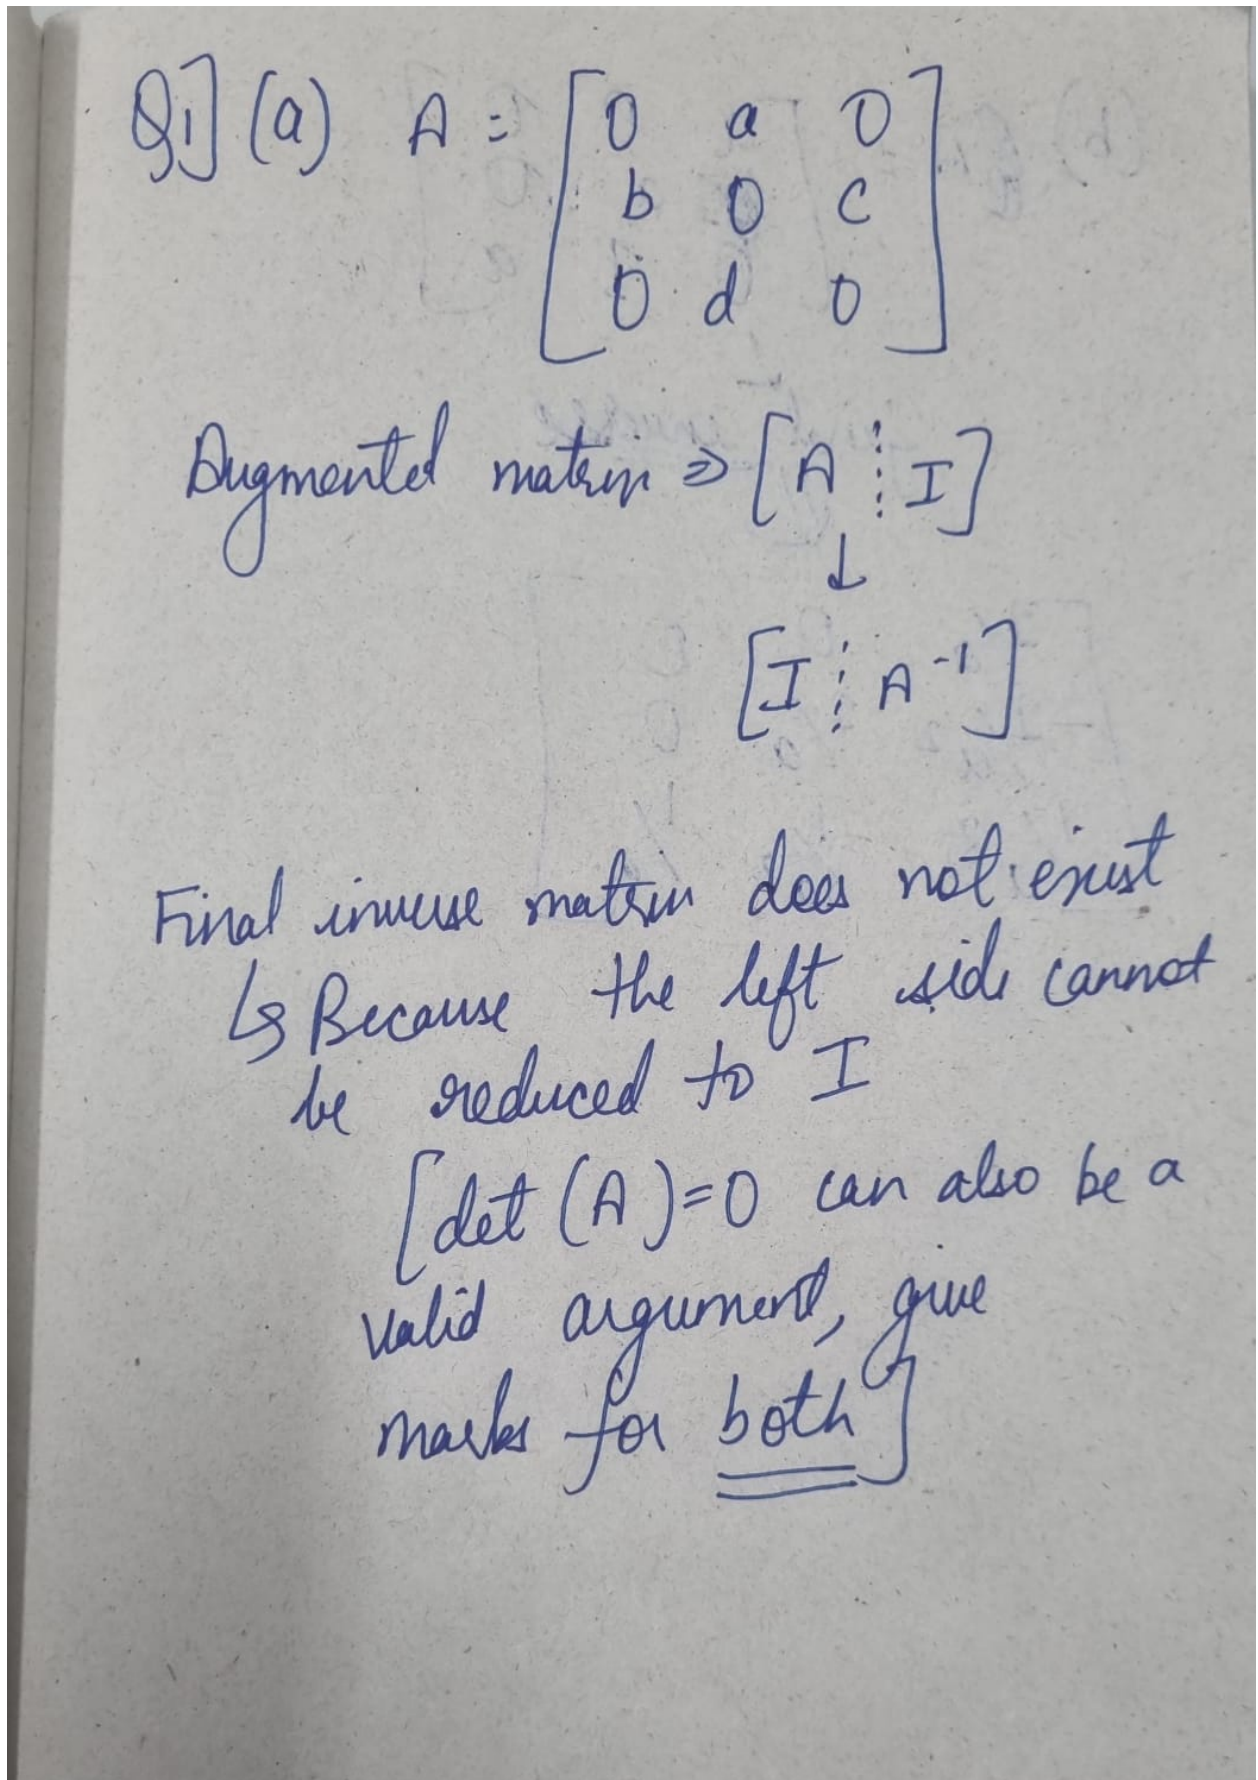 Q1] (a) A = [0 a 0
b 0 c
0 d 0]
Augmented matrix ⇒ [A ⋮ I]
↓
[I ⋮ A⁻¹]
Final inverse matrix does not exist
↳ Because the left side cannot
be reduced to I
[det (A)=0 can also be a
valid argument, give
marks for both]